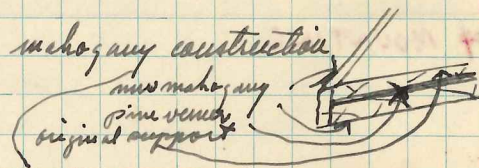 mahogany construction
new mahogany
pine veneer
original support